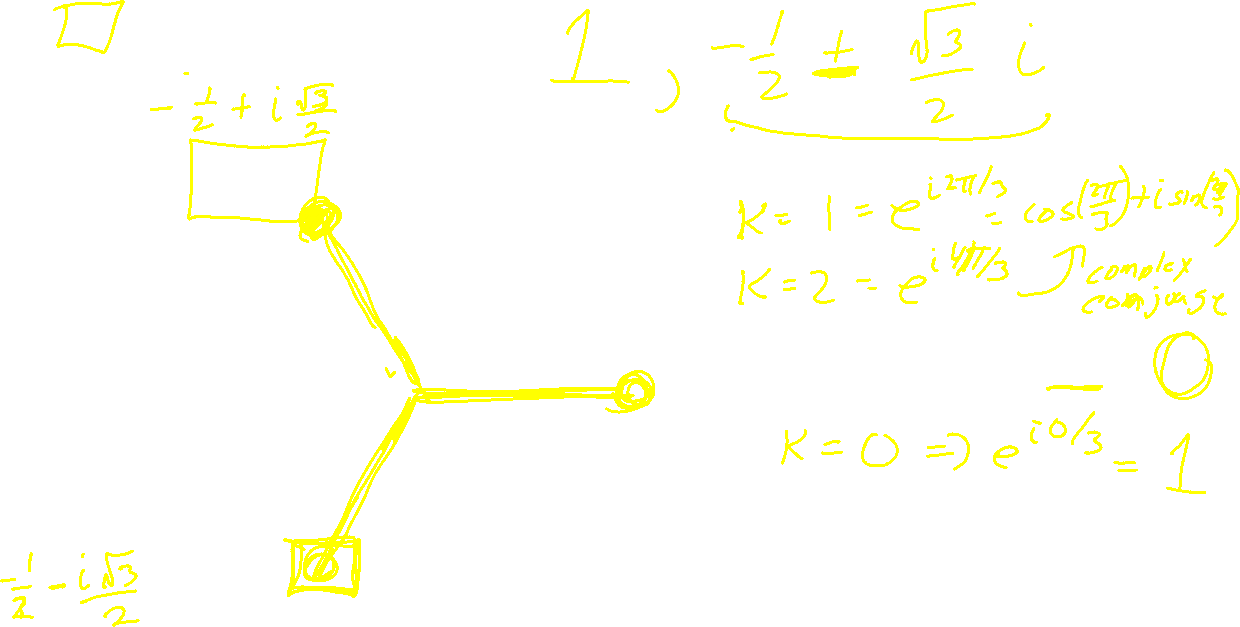 1 , -1/2 ± √3/2 i
-1/2 + i √3/2
K = 1 = e^{i2π/3} = cos(2π/3) + i sin(2π/3)
K = 2 = e^{i4π/3} complex
conjugate
K = 0 => e^{i0/3} = 1
-1/2 - i√3/2